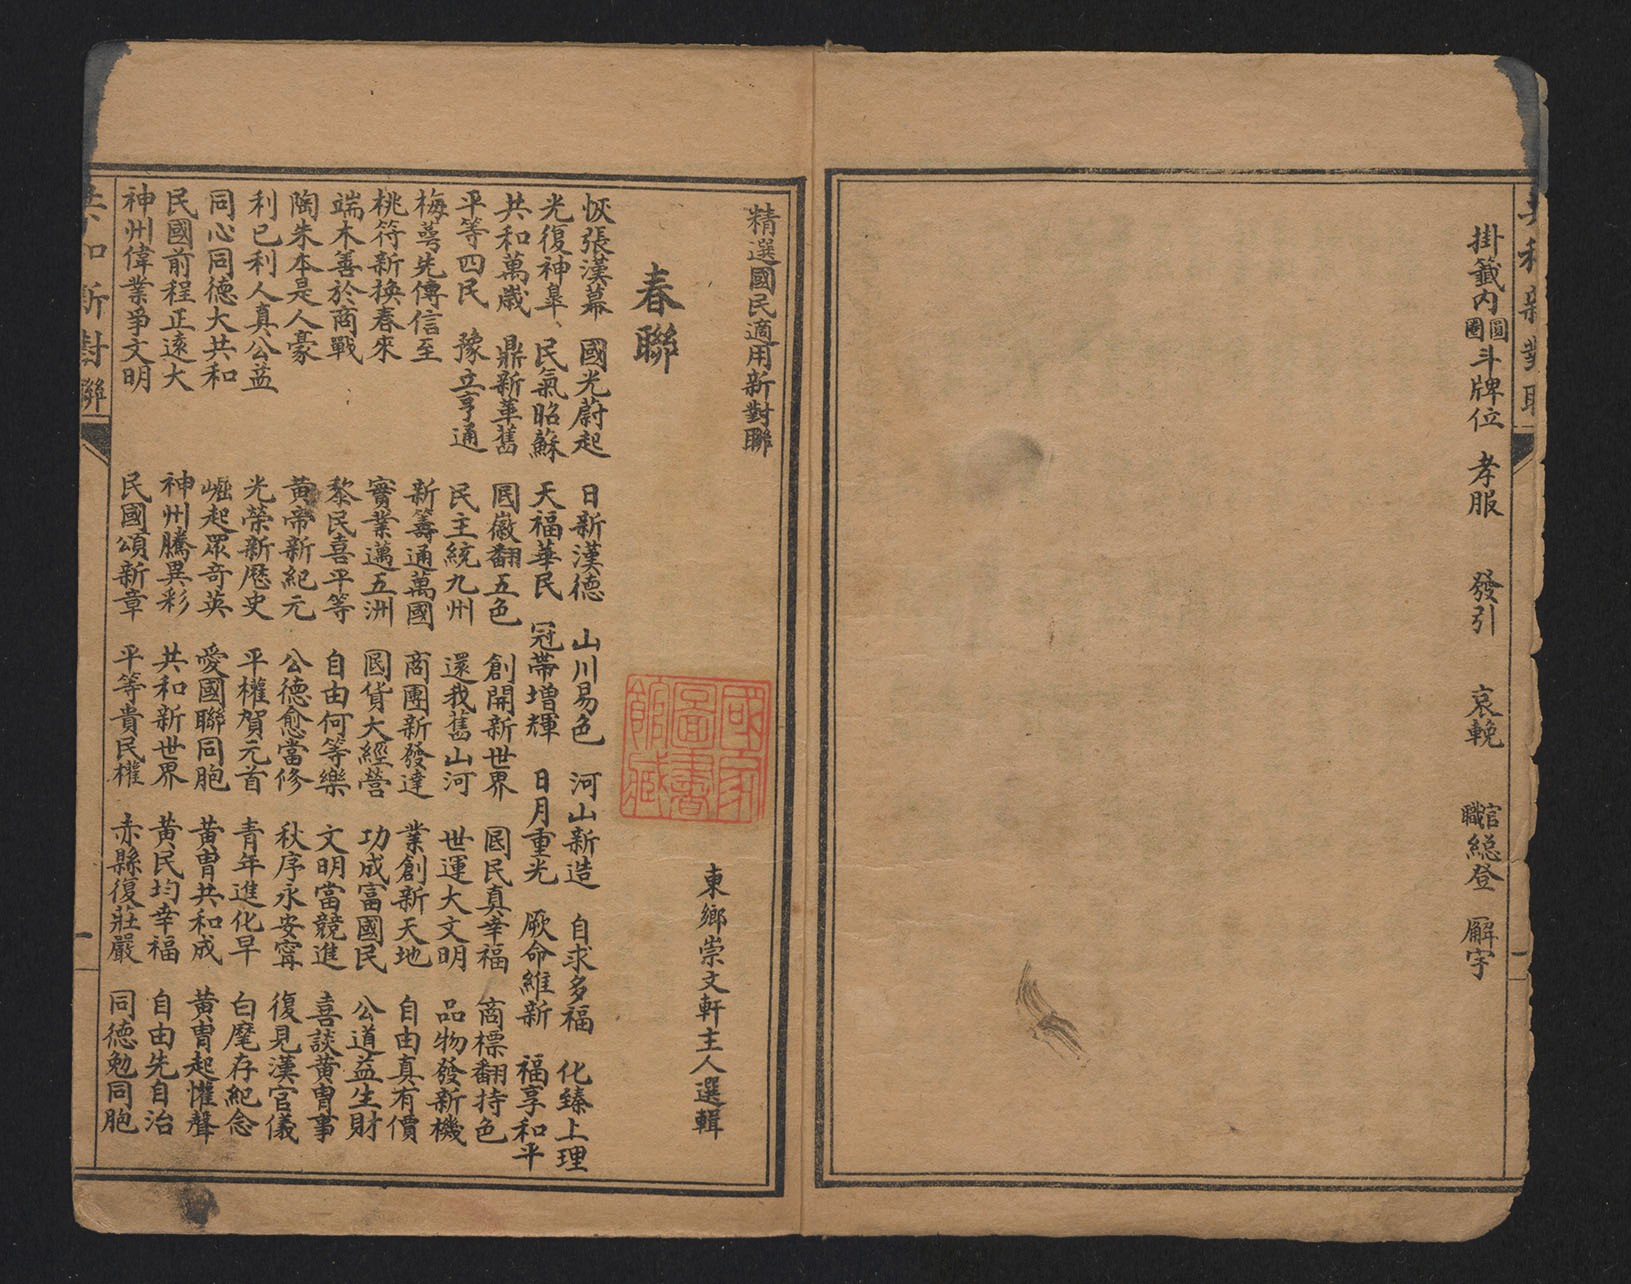 共和新對聯
掛籤內圓圈斗牌位 孝服 發引 哀輓 官職緫登 廨宇
一
精選國民適用新對聯
東鄉崇文軒主人選輯
國家圖書館藏
春聯
恢張漢幕 國光蔚起 日新漢德 山川易色 河山新造 自求多福 化臻上理
光復神皐、民氣昭蘇 天福華民 冠帶增輝 日月重光 厥命維新 福享和平
共和萬歲 鼎新革舊 國徽翻五色 創開新世界 國民真幸福 商標翻持色
平等四民 豫立亨通 民主統九州 還我舊山河 世運大文明 品物發新機
梅萼先傳信至 新籌通萬國 商團新發達 業創新天地 自由真有價
桃符新換春來 實業邁五洲 國貨大經營 功成富國民 公道益生財
端木善於商戰 黎民喜平等 自由何等樂 文明當競進 喜談黃冑事
陶朱本是人豪 黃帝新紀元 公德愈當修 秋序永安寗 復見漢官儀
利己利人真公益 光榮新歷史 平權賀元首 青年進化早 白麾存紀念
同心同德大共和 崛起眾奇英 愛國聯同胞 黃冑共和成 黃冑起懽聲
民國前程正遠大 神州騰異彩 共和新世界 黃民均幸福 自由先自治
神州偉業爭文明 民國頌新章 平等貴民權 赤縣復莊嚴 同德勉同胞
共和新對聯
一